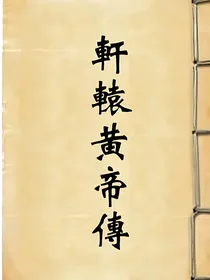 軒轅黃帝傳